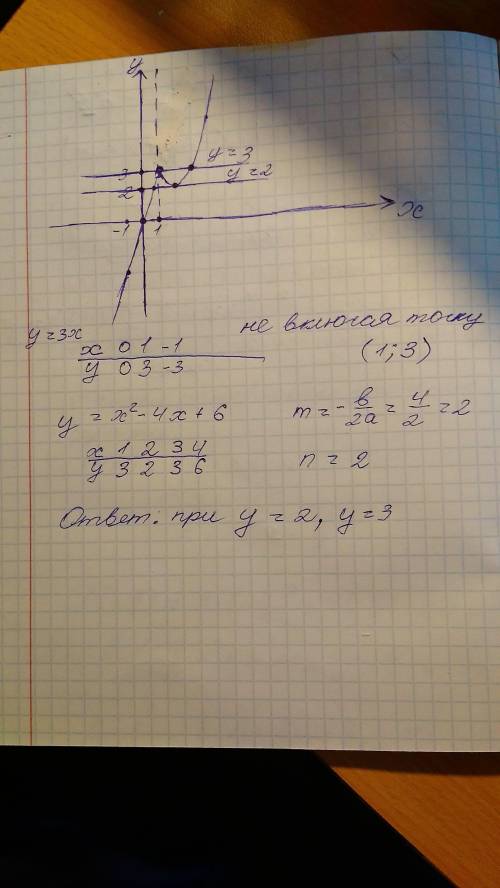 y
y=3
y=2
3
2
-1 1 x
y=3x
x 0 1 -1
y 0 3 -3
не включая точку
(1;3)
y = x²-4x+6
m=-b/2a=4/2=2
x 1 2 3 4
y 3 2 3 6
n = 2
Ответ: при y = 2, y=3